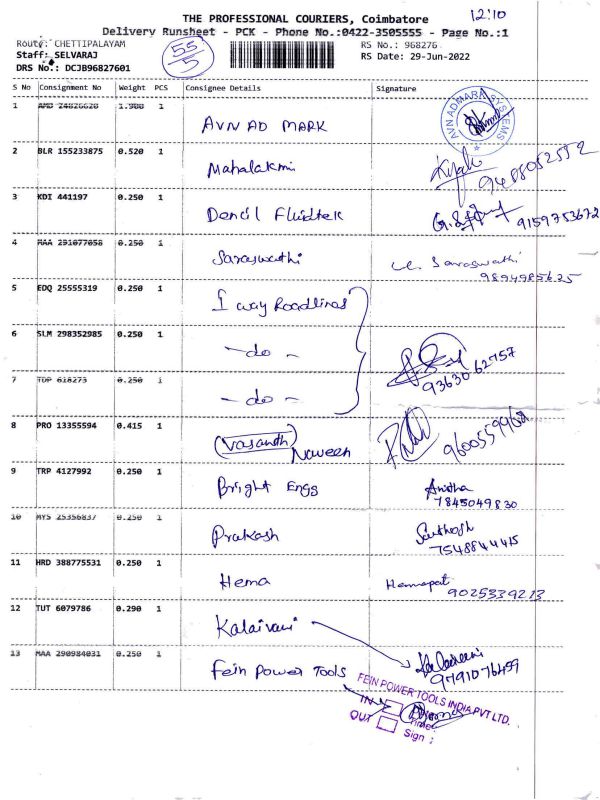 12:10
THE PROFESSIONAL COURIERS, Coimbatore
Delivery Runsheet - PCK - Phone No.:0422-3505555 - Page No.:1
Route: CHETTIPALAYAM
Staff: SELVARAJ
DRS No.: DCJB96827601
55/5
RS No.: 968276
RS Date: 29-Jun-2022
S No Consignment No Weight PCS Consignee Details Signature
1 AMD 24826620 1.980 1 AVN AD MARK AVN ADMARK SYSTEMS
2 BLR 155233875 0.520 1 Mahalakmi 9488052592
3 KDI 441197 0.250 1 Dencil Fluidtek 9159753672
4 MAA 291077058 0.250 1 Saraswathi Saraswathi
9894985625
5 EDQ 25555319 0.250 1 I way Roadlines
6 SLM 298352985 0.250 1 - do - 9363062757
7 TDP 618273 0.250 1 - do -
8 PRO 13355594 0.415 1 (Vasanth) Naveen 9600559968
9 TRP 4127992 0.250 1 Bright Engg Anitha
7845049830
10 MYS 25356837 0.250 1 Prakash Santhosh
7548844415
11 HRD 388775531 0.250 1 Hema 9025339213
12 TUT 6079786 0.290 1 Kalaivani
9791076459
13 MAA 290984031 0.250 1 Fein Power Tools
FEIN POWER TOOLS INDIA PVT LTD.
IN
OUT
Sign :